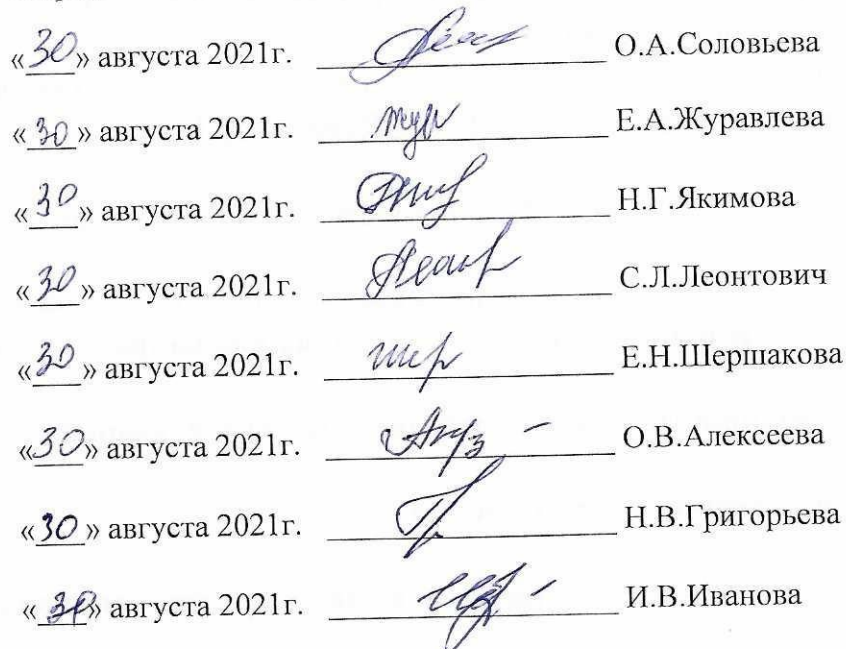 «30» августа 2021г. О.А.Соловьева
«30» августа 2021г. Е.А.Журавлева
«30» августа 2021г. Н.Г.Якимова
«30» августа 2021г. С.Л.Леонтович
«30» августа 2021г. Е.Н.Шершакова
«30» августа 2021г. О.В.Алексеева
«30» августа 2021г. Н.В.Григорьева
«30» августа 2021г. И.В.Иванова